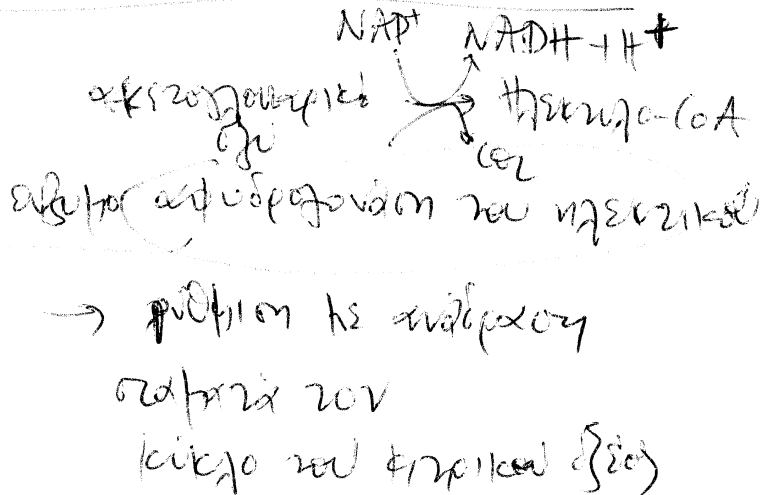 NAD⁺ NADH + H⁺
ακετογλουταρικό → ηλεκτυλο-CoA
οξύ CO₂
ένζυμο αφυδρογονάση του ηλεκτρικού
→ ρύθμιση με ανάδραση
σταματά τον
κύκλο του κιτρικού οξέος